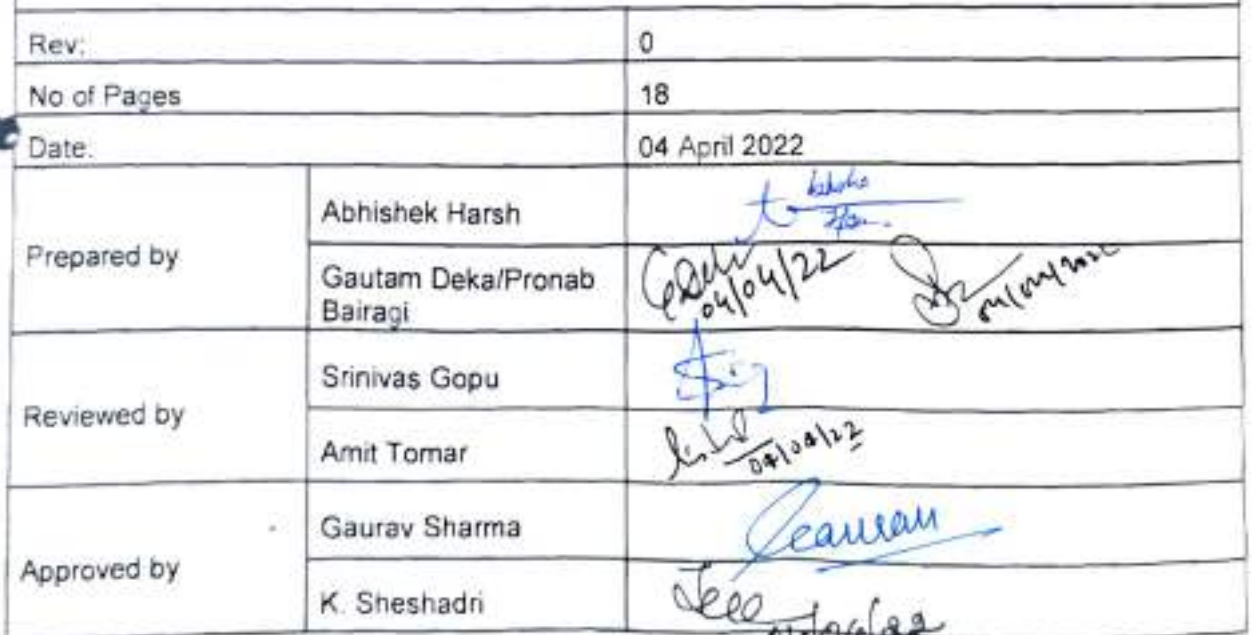 Rev: 0
No of Pages 18
Date: 04 April 2022
Prepared by
Abhishek Harsh
Gautam Deka/Pronab
Bairagi
04/04/22
04/04/2022
Reviewed by
Srinivas Gopu
Amit Tomar
04/04/22
Approved by
Gaurav Sharma
K. Sheshadri